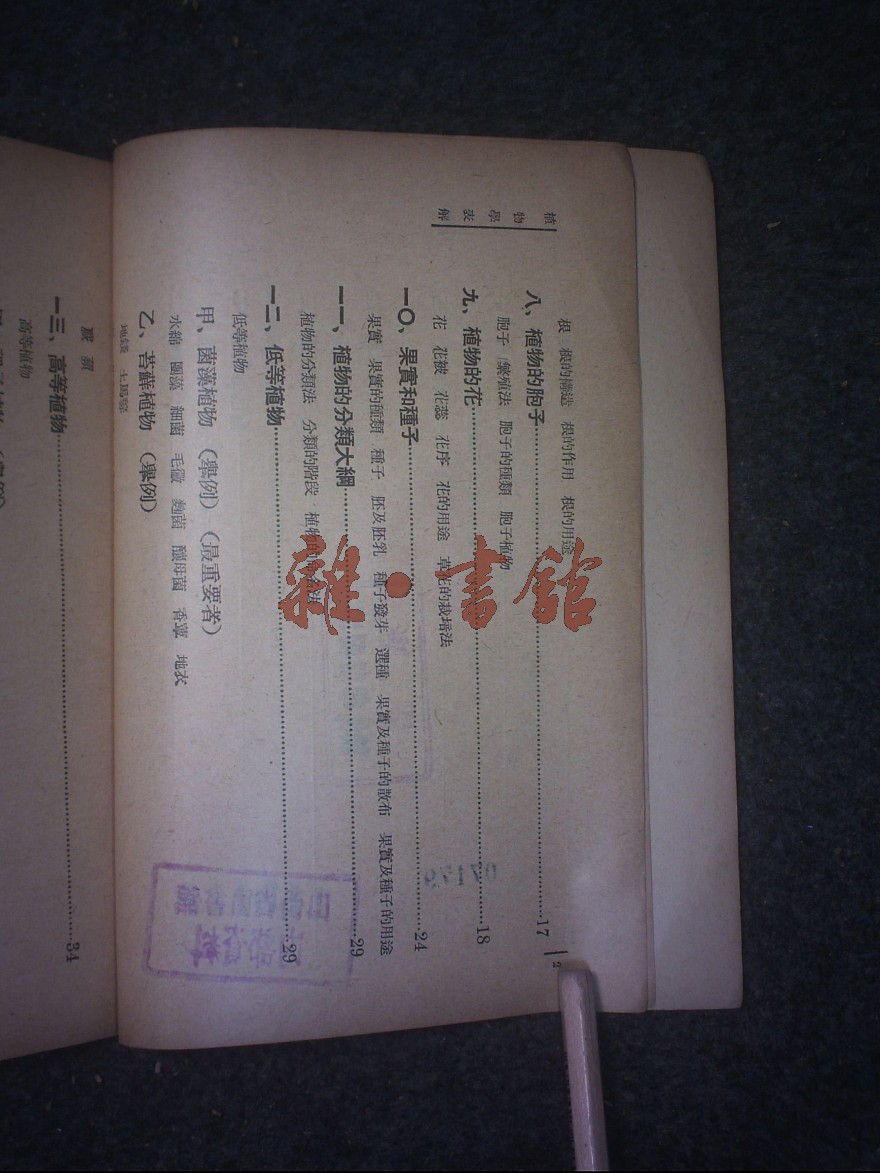 植物學表解
根　根的構造　根的作用　根的用途
八、植物的胞子……17
胞子　繁殖法　胞子的種類　胞子植物
九、植物的花……18
花　花被　花蕊　花序　花的用途　草花的栽培法
一〇、果實和種子……24
果實　果實的種類　種子　胚及胚乳　種子發芽　選種　果實及種子的散布　果實及種子的用途
一一、植物的分類大綱……29
植物的分類法　分類的階段　植物的
一二、低等植物……29
低等植物
甲、菌藻植物（舉例）（最重要者）
水綿　團藻　細菌　毛黴　麴菌　釀母菌　香蕈　地衣
乙、苔蘚植物（舉例）
地錢　土馬騣
2
07179
一三、高等植物……34
高等植物
雜·書館